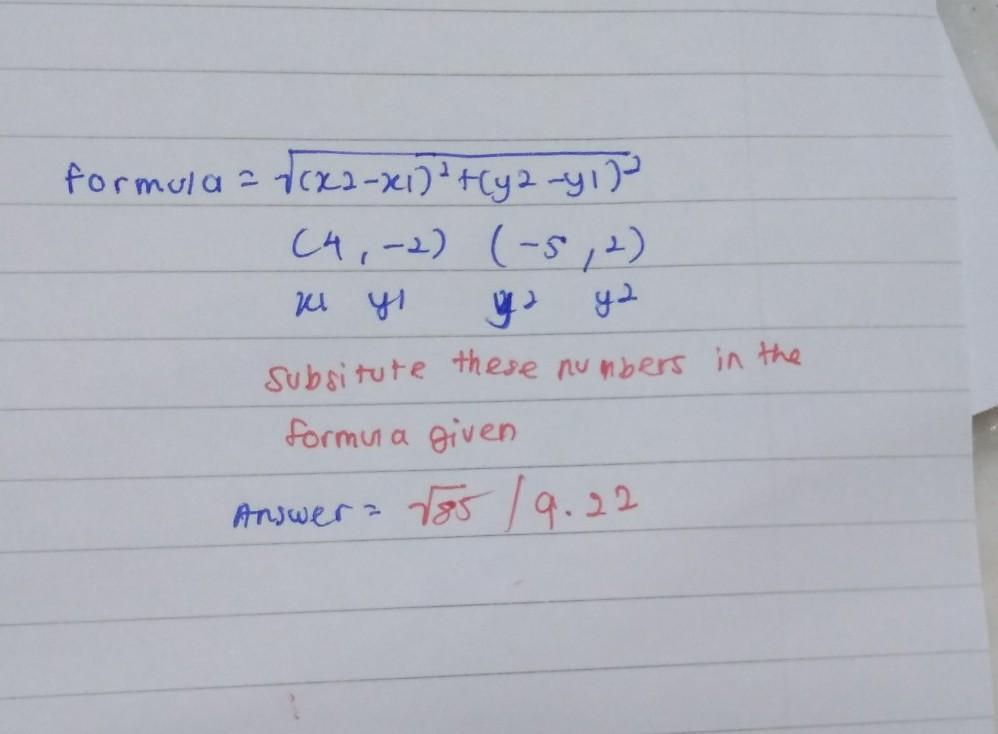 formula = √(x2-x1)²+(y2-y1)²
(4,-2) (-5,2)
x1 y1 y2 y2
Subsitute these numbers in the
formula given
Answer = √85 / 9.22